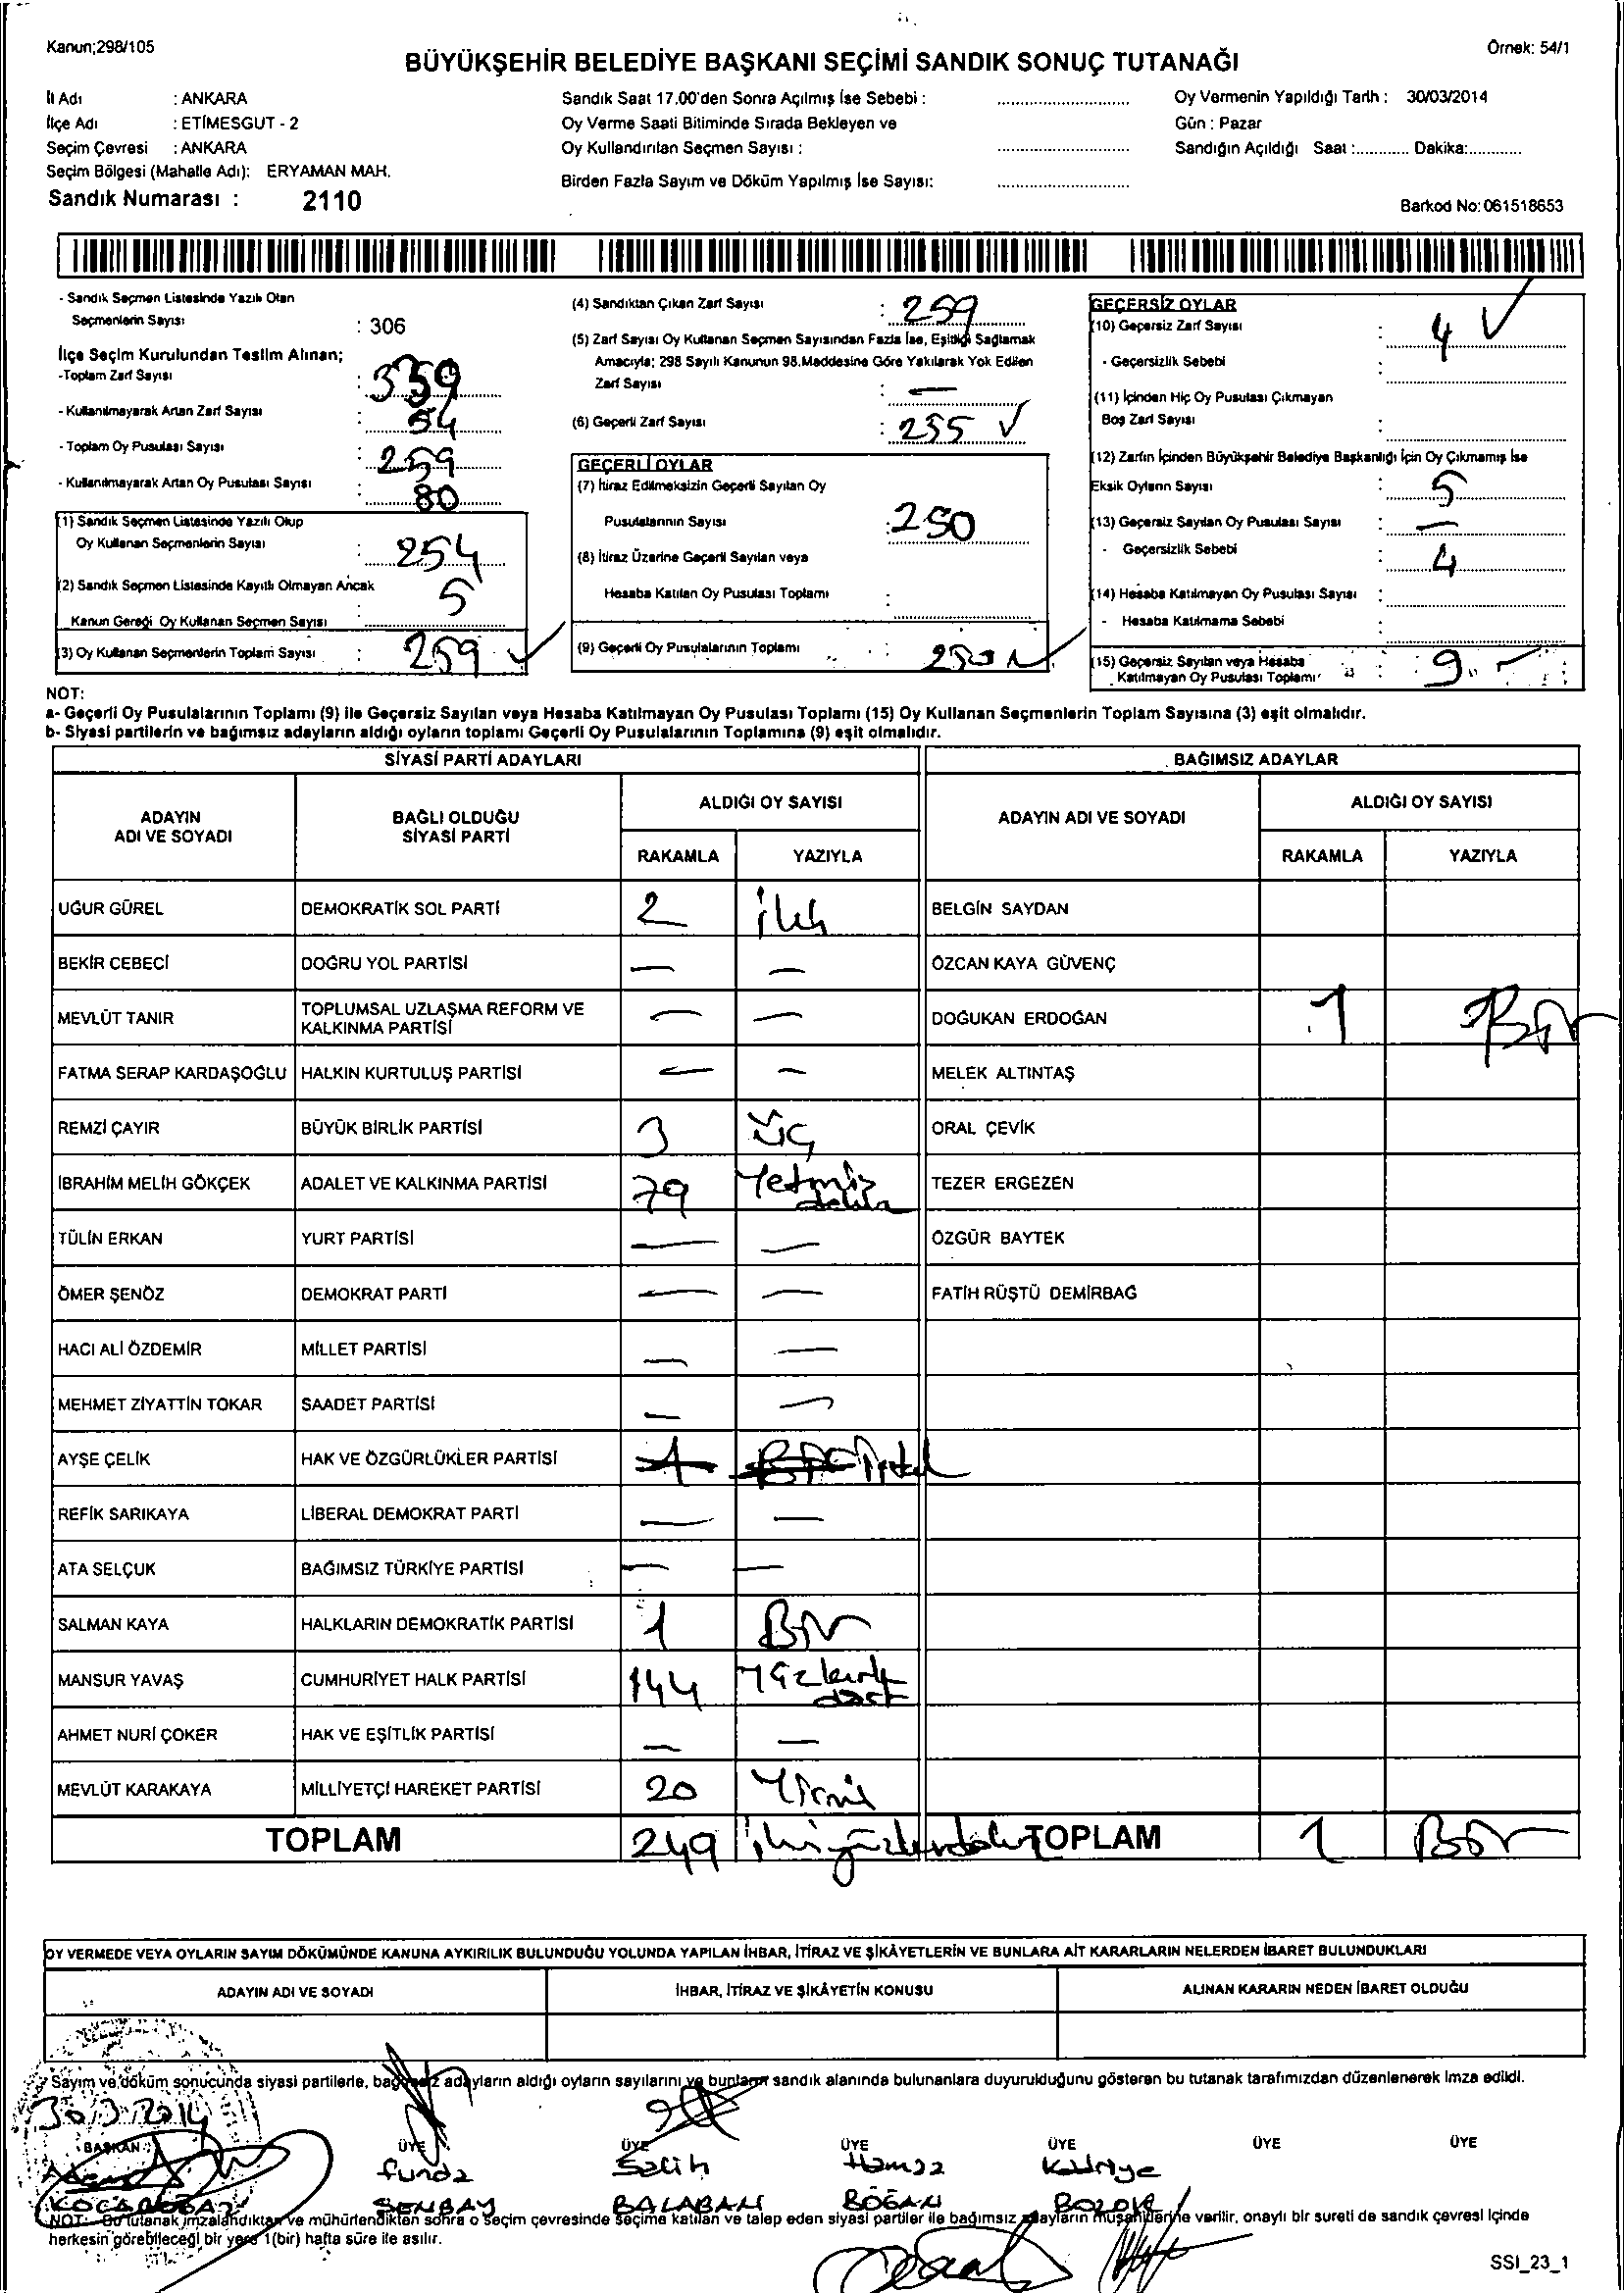 Kanun;298/105
Örnek: 54/1
BÜYÜKŞEHİR BELEDİYE BAŞKANI SEÇİMİ SANDIK SONUÇ TUTANAĞI
İl Adı : ANKARA
İlçe Adı : ETİMESGUT - 2
Seçim Çevresi : ANKARA
Seçim Bölgesi (Mahalle Adı): ERYAMAN MAH.
Sandık Numarası : 2110
Sandık Saat 17.00'den Sonra Açılmış İse Sebebi :
Oy Verme Saati Bitiminde Sırada Bekleyen ve
Oy Kullandırılan Seçmen Sayısı :
Birden Fazla Sayım ve Döküm Yapılmış İse Sayısı:
Oy Vermenin Yapıldığı Tarih : 30/03/2014
Gün : Pazar
Sandığın Açıldığı Saat :............ Dakika:............
Barkod No: 061518653
- Sandık Seçmen Listesinde Yazılı Olan
Seçmenlerin Sayısı : 306
İlçe Seçim Kurulundan Teslim Alınan;
-Toplam Zarf Sayısı : 339
- Kullanılmayarak Artan Zarf Sayısı : 54
- Toplam Oy Pusulası Sayısı : 259
- Kullanılmayarak Artan Oy Pusulası Sayısı : 80
(1) Sandık Seçmen Listesinde Yazılı Olup
Oy Kullanan Seçmenlerin Sayısı : 254
(2) Sandık Seçmen Listesinde Kayıtlı Olmayan Ancak
Kanun Gereği Oy Kullanan Seçmen Sayısı : 5
(3) Oy Kullanan Seçmenlerin Toplam Sayısı : 259
(4) Sandıktan Çıkan Zarf Sayısı : 259
(5) Zarf Sayısı Oy Kullanan Seçmen Sayısından Fazla İse, Eşitliği Sağlamak
Amacıyla; 298 Sayılı Kanunun 98.Maddesine Göre Yakılarak Yok Edilen
Zarf Sayısı : —
(6) Geçerli Zarf Sayısı : 255
GEÇERLİ OYLAR
(7) İtiraz Edilmeksizin Geçerli Sayılan Oy
Pusulalarının Sayısı : 250
(8) İtiraz Üzerine Geçerli Sayılan veya
Hesaba Katılan Oy Pusulası Toplamı :
(9) Geçerli Oy Pusulalarının Toplamı : 250
GEÇERSİZ OYLAR
(10) Geçersiz Zarf Sayısı : 4
- Geçersizlik Sebebi :
(11) İçinden Hiç Oy Pusulası Çıkmayan
Boş Zarf Sayısı :
(12) Zarfın İçinden Büyükşehir Belediye Başkanlığı İçin Oy Çıkmamış İse
Eksik Oyların Sayısı : 5
(13) Geçersiz Sayılan Oy Pusulası Sayısı : —
- Geçersizlik Sebebi : 4
(14) Hesaba Katılmayan Oy Pusulası Sayısı :
- Hesaba Katılmama Sebebi :
(15) Geçersiz Sayılan veya Hesaba
Katılmayan Oy Pusulası Toplamı : 9
NOT:
a- Geçerli Oy Pusulalarının Toplamı (9) ile Geçersiz Sayılan veya Hesaba Katılmayan Oy Pusulası Toplamı (15) Oy Kullanan Seçmenlerin Toplam Sayısına (3) eşit olmalıdır.
b- Siyasi partilerin ve bağımsız adayların aldığı oyların toplamı Geçerli Oy Pusulalarının Toplamına (9) eşit olmalıdır.
SİYASİ PARTİ ADAYLARI
ADAYIN ADI VE SOYADI BAĞLI OLDUĞU SİYASİ PARTİ ALDIĞI OY SAYISI
RAKAMLA YAZIYLA
UĞUR GÜREL DEMOKRATİK SOL PARTİ 2 iki
BEKİR CEBECİ DOĞRU YOL PARTİSİ — —
MEVLÜT TANIR TOPLUMSAL UZLAŞMA REFORM VE KALKINMA PARTİSİ — —
FATMA SERAP KARDAŞOĞLU HALKIN KURTULUŞ PARTİSİ — —
REMZİ ÇAYIR BÜYÜK BİRLİK PARTİSİ 3 üç
İBRAHİM MELİH GÖKÇEK ADALET VE KALKINMA PARTİSİ 79 Yetmiş dokuz
TÜLİN ERKAN YURT PARTİSİ — —
ÖMER ŞENÖZ DEMOKRAT PARTİ — —
HACI ALİ ÖZDEMİR MİLLET PARTİSİ — —
MEHMET ZİYATTİN TOKAR SAADET PARTİSİ — —
AYŞE ÇELİK HAK VE ÖZGÜRLÜKLER PARTİSİ 1 Bir iptal
REFİK SARIKAYA LİBERAL DEMOKRAT PARTİ — —
ATA SELÇUK BAĞIMSIZ TÜRKİYE PARTİSİ — —
SALMAN KAYA HALKLARIN DEMOKRATİK PARTİSİ 1 Bir
MANSUR YAVAŞ CUMHURİYET HALK PARTİSİ 144 Yüzkırk dört
AHMET NURİ ÇOKER HAK VE EŞİTLİK PARTİSİ — —
MEVLÜT KARAKAYA MİLLİYETÇİ HAREKET PARTİSİ 20 Yirmi
TOPLAM 249
BAĞIMSIZ ADAYLAR
ADAYIN ADI VE SOYADI ALDIĞI OY SAYISI
RAKAMLA YAZIYLA
BELGİN SAYDAN
ÖZCAN KAYA GÜVENÇ
DOĞUKAN ERDOĞAN 1 Bir
MELEK ALTINTAŞ
ORAL ÇEVİK
TEZER ERGEZEN
ÖZGÜR BAYTEK
FATİH RÜŞTÜ DEMİRBAĞ
TOPLAM 1 Bir
OY VERMEDE VEYA OYLARIN SAYIM DÖKÜMÜNDE KANUNA AYKIRILIK BULUNDUĞU YOLUNDA YAPILAN İHBAR, İTİRAZ VE ŞİKÂYETLERİN VE BUNLARA AİT KARARLARIN NELERDEN İBARET BULUNDUKLARI
ADAYIN ADI VE SOYADI İHBAR, İTİRAZ VE ŞİKÂYETİN KONUSU ALINAN KARARIN NEDEN İBARET OLDUĞU
Sayım ve döküm sonucunda siyasi partilerle, bağımsız adayların aldığı oyların sayılarını ve bunların sandık alanında bulunanlara duyurulduğunu gösteren bu tutanak tarafımızdan düzenlenerek imza edildi.
30/3/2014
BAŞKAN ÜYE ÜYE ÜYE ÜYE ÜYE ÜYE
Funda Salih Hamza Kadriye
ŞENBAY BALABAN BOĞAN
NOT: Bu tutanak imzalandıktan ve mühürlendikten sonra o seçim çevresinde seçime katılan ve talep eden siyasi partiler ile bağımsız adayların müşahitlerine verilir, onaylı bir sureti de sandık çevresi içinde
herkesin görebileceği bir yere 1(bir) hafta süre ile asılır.
SSI_23_1